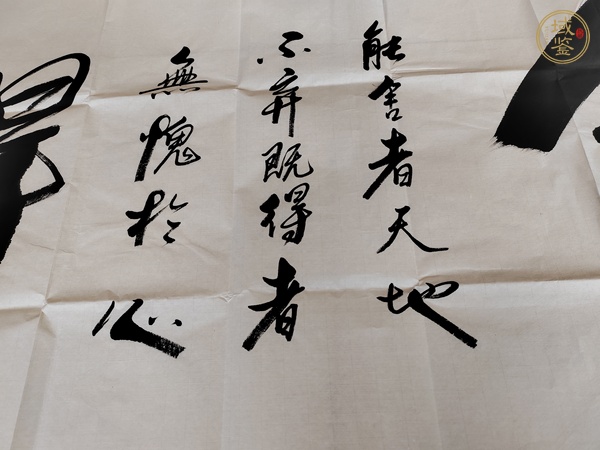 能舍者天地
不弃既得者
無愧於心
域鉴